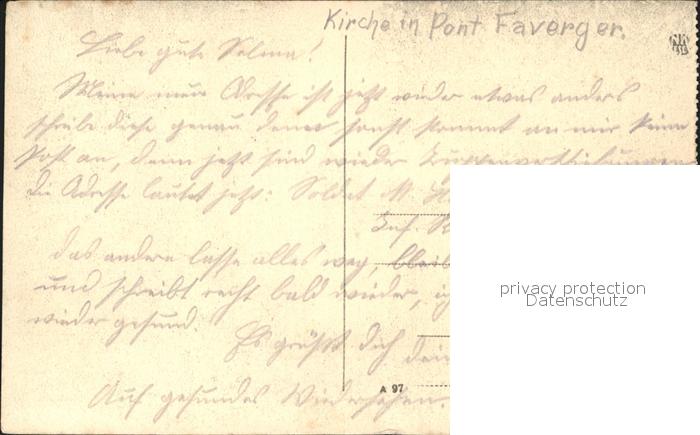 Kirche in Pont Faverger.
Liebe gute Selma!
Meine neue Adresse ist jetzt wieder etwas anders
schreibe diese genau denn sonst kommt an mir keine
Post an, denn jetzt sind wieder Truppenverschiebungen
die Adresse lautet jetzt: Soldat M. H
Inf. R
das andere lasse alles weg,
und schreibt recht bald wieder,
wieder gesund.
Es grüßt dich dein
Auf gesundes Wiedersehen.
A 97
privacy protection
Datenschutz